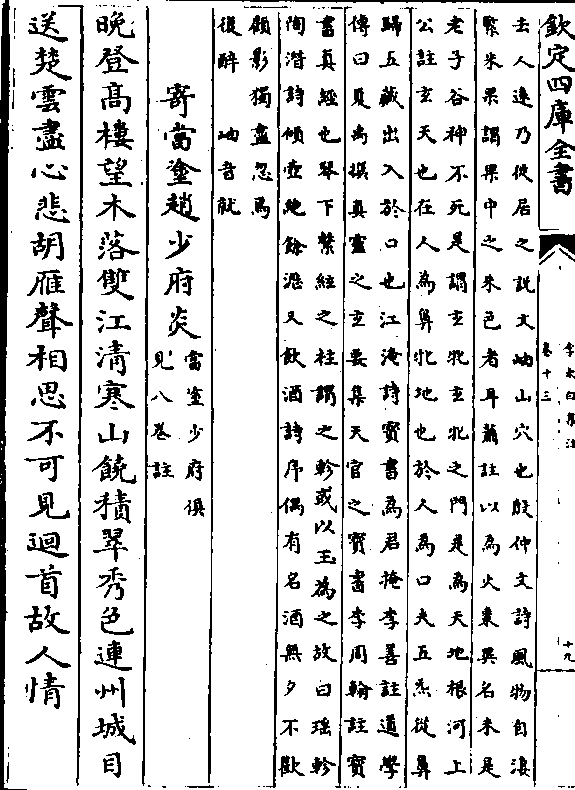 欽定四庫全書
李太白集注
卷十三
十九
去人遠乃從居之説文岫山穴也殷仲文詩風物自淒
緊朱果謂果中之朱色者耳蕭註以為火棗異名未是
老子谷神不死是謂玄牝玄牝之門是為天地根河上
公註玄天也在人為鼻牝地也於人為口夫五炁從鼻
歸五藏出入於口也江淹詩寶書為君掩李善註道學
傳曰夏禹撰真靈之玄要集天官之寶書李周翰註寶
書真經也琴下繫絃之柱謂之軫或以玉為之故曰瑶軫
陶潛詩傾壺絶餘瀝又飲酒詩序偶有名酒無夕不飲
顧影獨盡忽焉
復醉 岫音就
寄當塗趙少府炎 當塗少府俱
見八卷註
晩登高樓望木落雙江清寒山饒積翠秀色連州城目
送楚雲盡心悲胡雁聲相思不可見迴首故人情